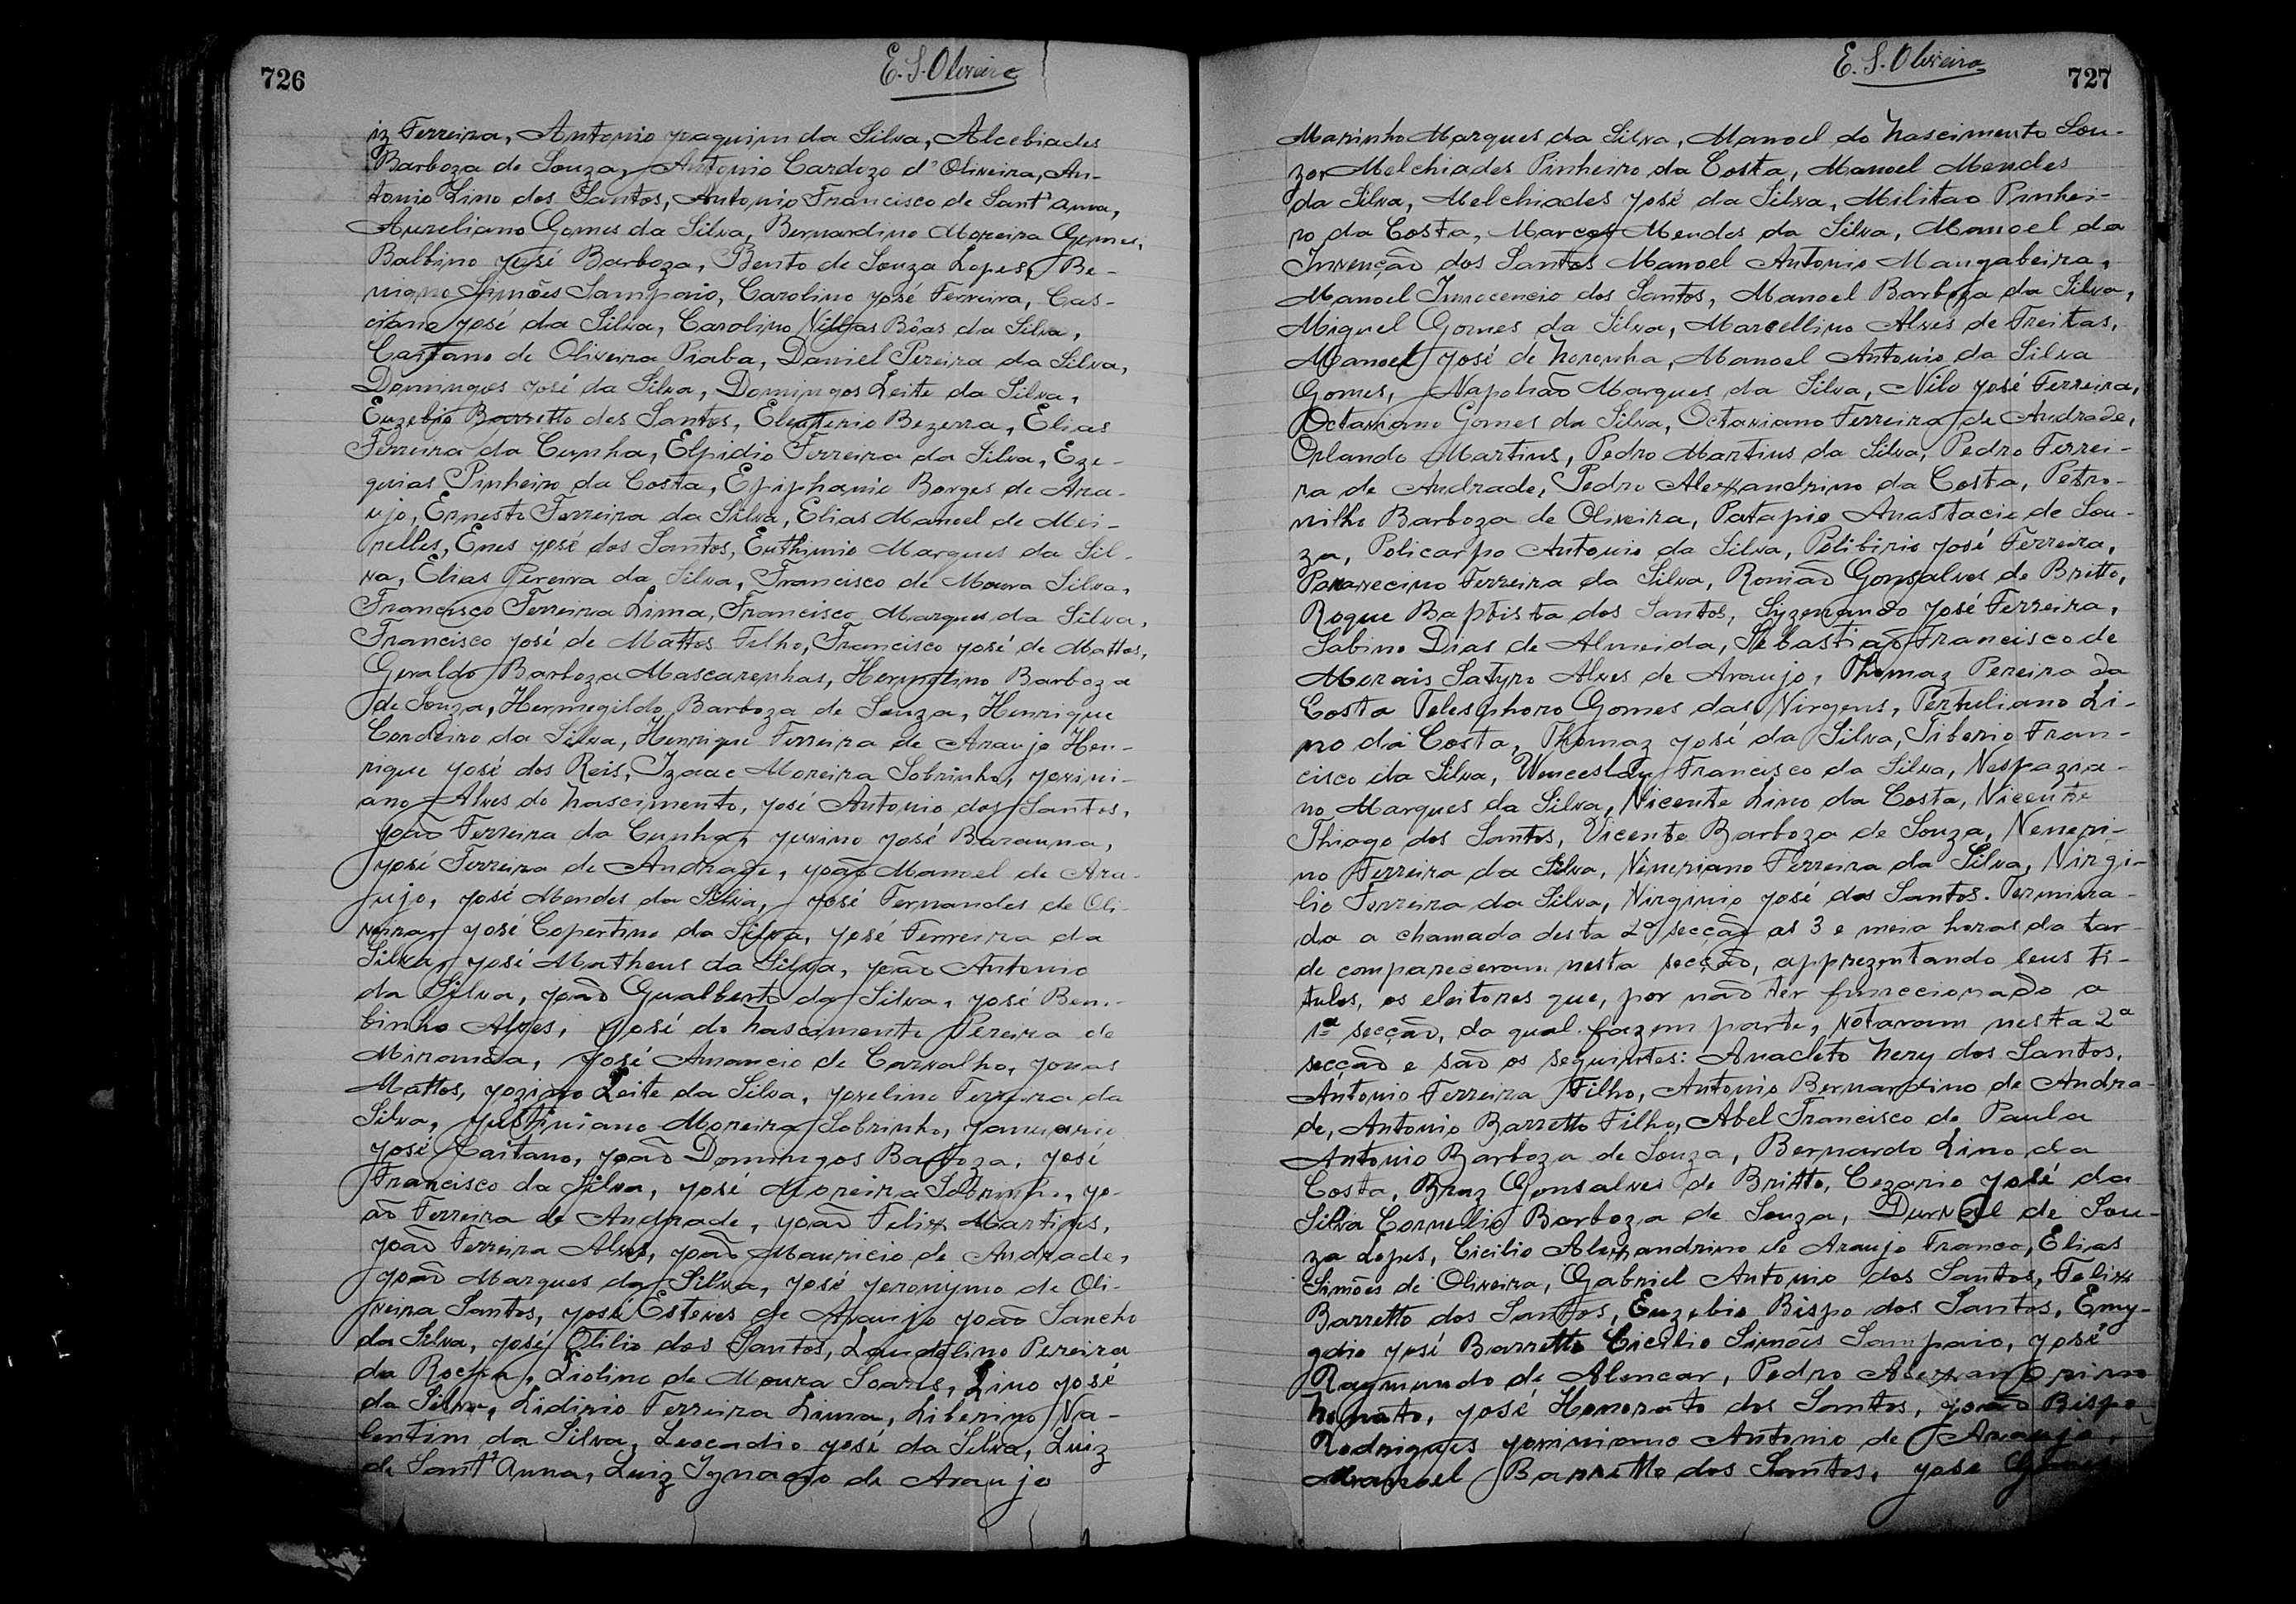 726
E. S. Oliveira
iz Ferreira, Antonio Joaquim da Silva, Alcebiades
Barboza de Souza, Antonio Cardozo d'Oliveira, An-
tonio Lino dos Santos, Antonio Francisco de Sant'Anna,
Aureliano Gomes da Silva, Bernardino Moreira Gomes,
Balbino José Barboza, Bento de Souza Lopes, Be-
nigno Simões Sampaio, Carolino José Ferreira, Cas-
ciano José da Silva, Carolino Villas Bôas da Silva,
Caitano de Oliveira Piaba, Daniel Pereira da Silva,
Domingos José da Silva, Domingos Leite da Silva,
Euzebio Barretto dos Santos, Eleuterio Bezerra, Elias
Ferreira da Cunha, Elpidio Ferreira da Silva, Eze-
quias Pinheiro da Costa, Epiphanio Borges de Ara-
ujo, Ernesto Ferreira da Silva, Elias Manoel de Mei-
relles, Enes José dos Santos, Euthimio Marques da Sil-
va, Elias Pereira da Silva, Francisco de Moura Silva,
Francisco Ferreira Lima, Francisco Marques da Silva,
Francisco José de Mattos Filho, Francisco José de Mattos,
Geraldo Barboza Mascarenhas, Hermelino Barboza
de Souza, Hermegildo Barboza de Souza, Henrique
Cordeiro da Silva, Henrique Ferreira de Araujo Hen-
rique José dos Reis, Izaac Moreira Sobrinho, Jovini-
ano Alves do Nascimento, José Antonio dos Santos,
João Ferreira da Cunha, Juvino José Barauna,
José Ferreira de Andrade, João Manoel de Ara-
ujo, José Mendes da Silva, José Fernandes de Oli-
veira, José Copertino da Silva, José Ferreira da
Silva, José Matheus da Silva, João Antonio
da Silva, João Gualberto da Silva, José Ben-
tinho Alves, José do Nascimento Pereira de
Miranda, José Amancio de Carvalho, Jonas
Mattos, Jozino Leite da Silva, Jovelino Ferreira da
Silva, Justiniano Moreira Sobrinho, Januario
José Caitano, João Domingos Barboza, José
Francisco da Silva, José Moreira Sobrinho, Jo-
ão Ferreira de Andrade, João Felix Martins,
João Ferreira Alves, João Mauricio de Andrade,
João Marques da Silva, José Jeronymo de Oli-
veira Santos, José Esteves de Araujo João Sancho
da Silva, José Olilio dos Santos, Laudelino Pereira
da Rocha, Liolino de Moura Soares, Lino José
da Silva, Lidirio Ferreira Lima, Liberino Va-
lentim da Silva, Leocadio José da Silva, Luiz
de Sant'Anna, Luiz Ignacio de Araujo
E. S. Oliveira
727
Marinho Marques da Silva, Manoel do Nascimento Sou-
za Melchiades Pinheiro da Costa, Manoel Mendes
da Silva, Melchiades José da Silva, Militao Pinhei-
ro da Costa, Marcos Mendes da Silva, Manoel da
Invenção dos Santos Manoel Antonio Mangabeira,
Manoel Innocencio dos Santos, Manoel Barboza da Silva,
Miguel Gomes da Silva, Marcellino Alves de Freitas,
Manoel José de Noronha, Manoel Antonio da Silva
Gomes, Napolião Marques da Silva, Nilo José Ferreira,
Octaviano Gomes da Silva, Octaviano Ferreira de Andrade,
Orlando Martins, Pedro Martins da Silva, Pedro Ferrei-
ra de Andrade, Pedro Alexandrino da Costa, Petro-
nilho Barboza de Oliveira, Patapio Anastacio de Sou-
za, Policarpo Antonio da Silva, Polibirio José Ferreira,
Ferreira da Silva, Romão Gonsalves de Britto,
Roque Baptista dos Santos, Syzenando José Ferreira,
Sabino Dias de Almeida, Sebastião Francisco de
Morais Satyro Alves de Araujo, Thomaz Pereira da
Costa Telesphoro Gomes das Virgens, Tertuliano Li-
no da Costa, Thomaz José da Silva, Tiberio Fran-
cisco da Silva, Wenceslau Francisco da Silva, Vespazia-
no Marques da Silva, Vicente Lino da Costa, Vicente
Thiago dos Santos, Vicente Barboza de Souza, Veneri-
no Ferreira da Silva, Vineriano Ferreira da Silva, Virgi-
lio Ferreira da Silva, Virginio José dos Santos. Termina-
da a chamada desta 2ª secção as 3 e meia horas da tar-
de compareceram nesta secção, apprezentando seus ti-
tulos, os eleitores que, por não ter funccionado a
1ª secção, da qual fazem parte, votaram nesta 2ª
secção e são os seguintes: Anacleto Nery dos Santos,
Antonio Ferreira Filho, Antonio Bernardino de Andra-
de, Antonio Barretto Filho, Abel Francisco de Paula
Antonio Barboza de Souza, Bernardo Lino da
Costa, Braz Gonsalves de Britto, Cezario José da
Silva Cornelio Barboza de Souza, Durval de Sou-
za Lopes, Cicilio Alexandrino de Araujo Franco, Elias
Simões de Oliveira, Gabriel Antonio dos Santos, Felix
Barretto dos Santos, Euzebio Bispo dos Santos, Emy-
gdio José Barretto Cicilio Simões Sampaio, José
Raymundo de Alencar, Pedro Alexandrino
Nonato, José Honorato dos Santos, João Bispo
Rodrigues Joviniano Antonio de Araujo,
Manoel Barretto dos Santos, José